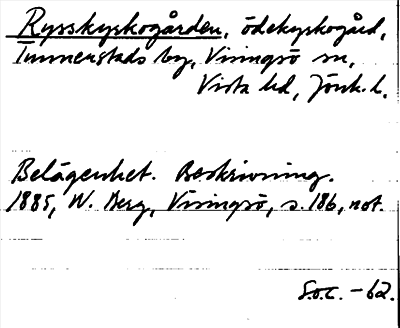 Rysskyrkogården, ödekyrkogård,
Tunnerstads by, Visingsö sn,
Vista hd, Jönk. l.
Belägenhet. Beskrivning.
1885, W. Berg, Visingsö, s. 186, not.
S.o.c. -62.